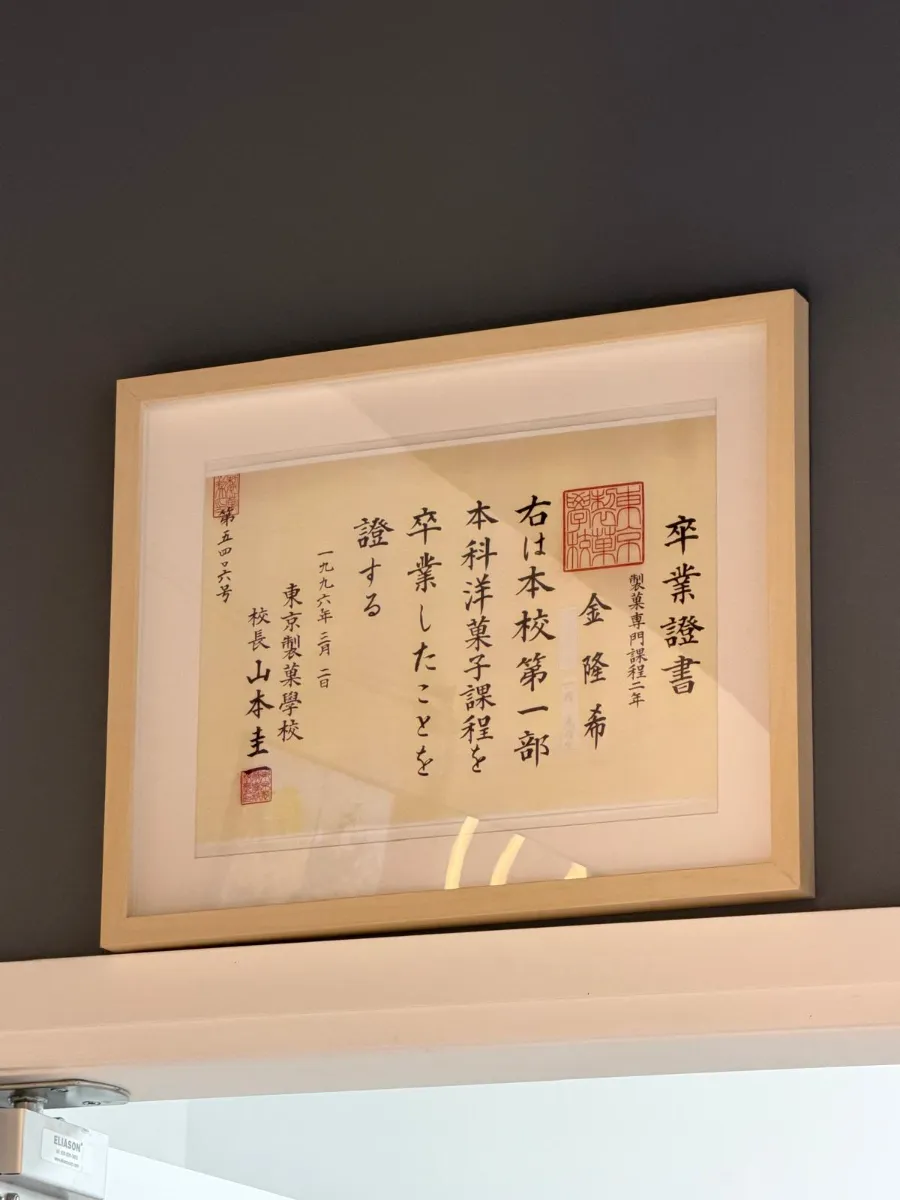 卒業證書
製菓専門課程二年
東京製菓學校
金隆希
右は本校第一部
本科洋菓子課程を
卒業したことを
證する
一九九六年三月二日
東京製菓學校
校長山本圭
第五四〇六号
ELIASON